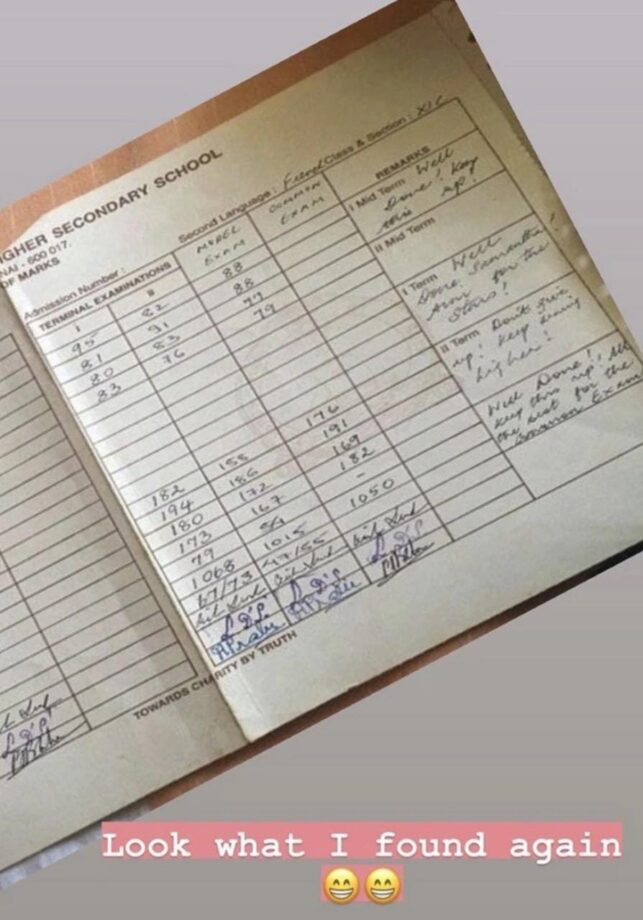 IGHER SECONDARY SCHOOL
NAI - 600 017.
OF MARKS
Admission Number :
Second Language : French
Class & Section : XI C
TERMINAL EXAMINATIONS
I
II
MODEL
EXAM
COMMON
EXAM
REMARKS
95 82 88
81 91 88
80 83 77
83 76 79
182 155 176
194 186 191
180 172 169
173 167 182
79 54 -
1068 1015 1050
67/73 47/55
I Mid Term Well
Done! Keep
this up!
II Mid Term
I Term Well
Done Samantha!
Aim for the
Stars!
II Term Don't give
up! Keep
higher!
Well Done!
Keep this up, All
the best for the
Common Exam
TOWARDS CHARITY BY TRUTH
Look what I found again
😁😁